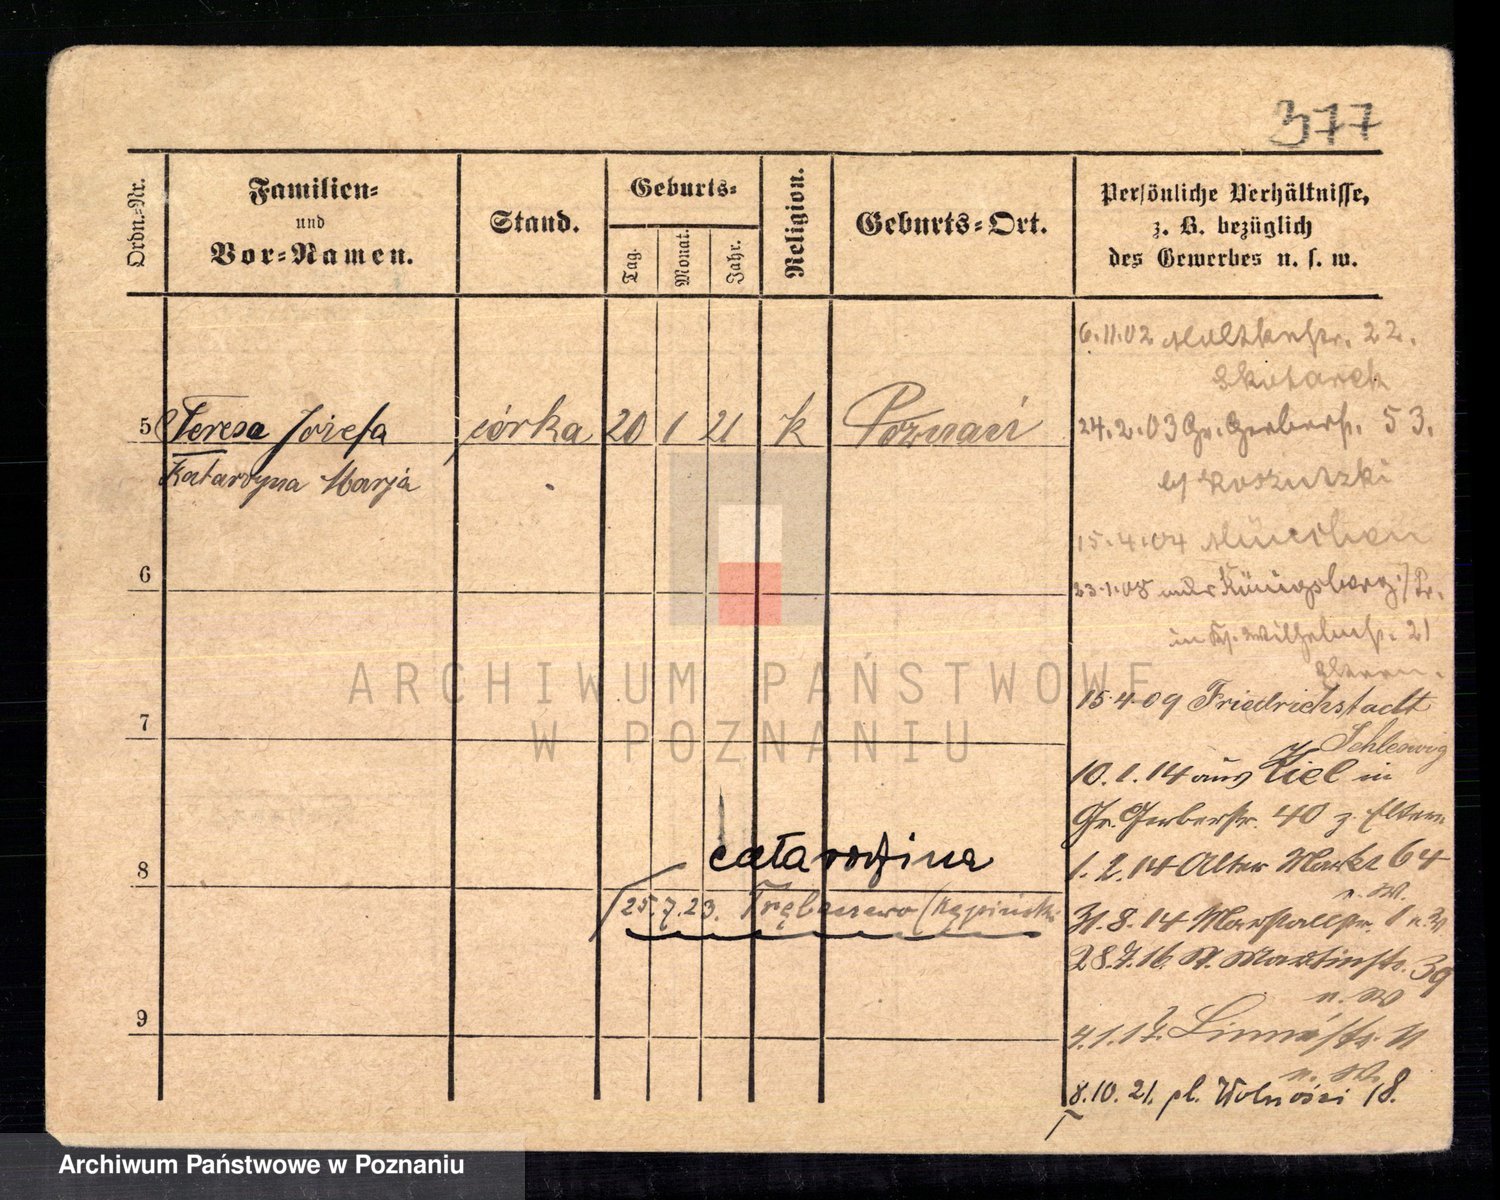 377
Ordn.-Nr.
Familien-
und
Vor-Namen.
Stand.
Geburts-
Tag.
Monat.
Jahr.
Religion.
Geburts-Ort.
Persönliche Verhältnisse,
z. B. bezüglich
des Gewerbes u. s. w.
6.11.02 Moltkestr. 22.
Skutarek
5 Teresa Józefa córka 20 1 21 k Poznań
24.2.03 Gr. Gerberstr. 53.
Katarzyna Marja
b/ Koszutzki
15.4.04 München
6
23.1.08 Königsberg i/Pr.
in Wilhelmstr. 21
Eltern.
15.4.09 Friedrichstadt
7
Schleswig
10.1.14 aus Kiel in
Gr. Gerberstr. 40 z. Eltern
catarozina
8
1.2.14 Alter Markt 64
n. W.
25.7.23. Trębaczewo (Kępiński
31.8.14 Marstallstr. 1 n. W
28.7.16. St. Martinstr. 39
n. W
9
4.1.17. Linnéstr. 11
n. W.
8.10.21. pl. Wolności 18.
ARCHIWUM PAŃSTWOWE
W POZNANIU
Archiwum Państwowe w Poznaniu